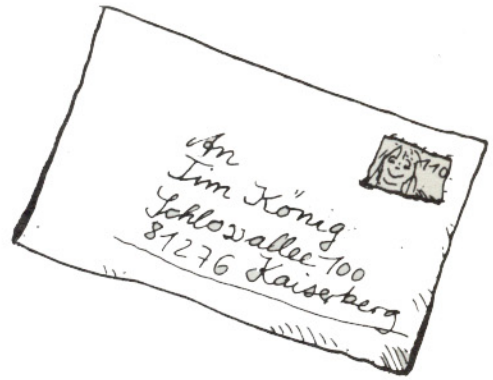 An
Tim König
Schlossallee 100
81276 Kaiserberg
110